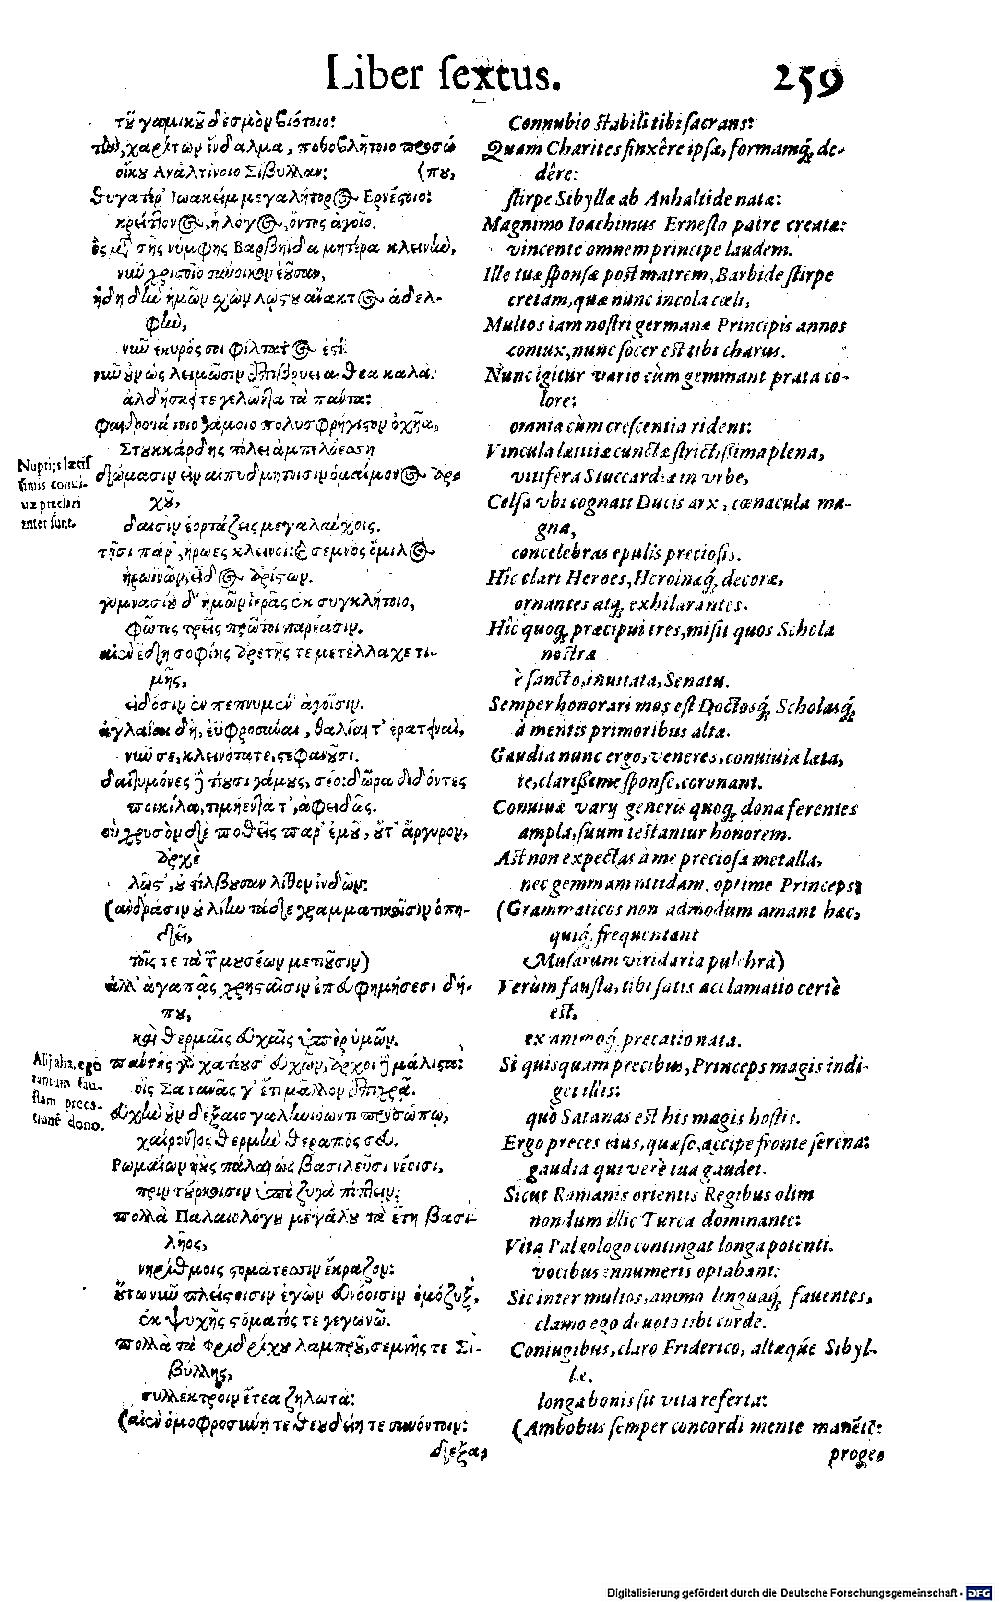 Liber sextus. 259
τῦ γαμικῦ δεσμὸν βιότοιο:
τὼ, χαρίτων ἴνδαλμα, ποθοβλήτοιο προσώ
οἴκυ Αναλτίνοιο Σιβύλλαν: (πυ,
θυγατέρ' Ιωακεὶμ μεγαλήτορος Ερνέςοιο:
κρείττονος, ἢ λόγος, ὄντος ἀγοῖο.
ὃς μζ σῆς νύμφης Βαρβηίδα μητέρα κλεινὼ,
νῦν χριστοῖο σύνοικον ἐῦσαν,
ἤδη δὼ ἡμῶν ἐχὼν λῳςυ ἄνακτος ἀδελ-
φὼ,
νῦν ἑκυρός σοι φίλτατός ἐςί.
νῦν ὖν ὡς λειμῶσιν ἐπιθρύει ἄνθεα καλά:
ἀλδήσκοντε γελῶντα τὰ πάντα:
φαιδροιά τοιο γάμοιο πολυσφρήγιςον ὀχῆα,
Στυκκάρδης πόλει ἀμπιλοέσσῃ
δώμασιν ἐν αἰπυδμήτισιν ὁμαίμονος ἀρ-
χῦ,
δαισὶν ἑορτάζεις μεγαλαύχοις.
τῇσι πάρ', ἥρωες κλεινοι: σεμνὸς ὅμιλος
ἡρωινῶν, εἶδος ἀρίςων.
γυμνασίυ δ' ἡμῶν ἱερᾶς ἐκ συγκλήτοιο,
φῶτες τρεῖς πρῶτοι παρέασιν.
αἰὲν ἐσλη σοφίης ἀρετῆς τε μετέλλαχε τι-
μῆς,
εἰδόσιν ἐν πεπνυμέν' ἀγοῖσιν.
ἀγλαίαι δὴ, ἐυφροσύναι, θαλίαι τ' ἐρατειναὶ,
νῦν σε, κλεινότατε, ςεφανῦσι.
δαιτυμόνες ἢ τίυσι γάμυς, σέο: δῶρα διδόντες
ποικίλα, τιμήεντά τ', ἀφειδῶς.
ὐ χρυσὸν δὲ ποθεῖς παρ' ἐμῦ, ὔτ' ἄργυρον,
ἀρχὲ
λῷς', ὐ ςίλβυσαν λίθον ἰνδῶν:
(ἀνδράσιν ὐ λίὼ τάδε γραμματικοῖσιν ὀπη-
δεῖ,
τοῖς τε τὰ τῶ μυσέων μετιῦσιν)
ἀλλ' ἀγαπᾷς χρηςαῖσιν ἐπευφημήσεσι δή-
πυ,
καὶ θερμαῖς εὐχαῖς ὑπὲρ ὑμῶν.
παντός γὸ χατέυσ' εὐχῶν, ἀρχοὶ ἢ μάλιςα:
οἷς Σατανᾶς γ' ἔτι μᾶλλον ἐπιχρᾷ.
εὐχὼ ὖν δέξαιο γαληνιόωντι προσώπῳ,
χαίροντος θερμὼ θεραπός σευ.
Ρωμαίων πάλαι ὡς βασιλεῦσι νέοισι,
πρὶν τύρκοισιν ὑπὸ ζυγὰ πίπτειν:
πολλὰ Παλαιολόγυ μεγάλυ τὰ ἔτη βασι-
λῆος,
νηρίθμοις ςομάτεσσιν ἔκραζον:
ὕτω νῦν πλείςοισιν ἐγὼν εὐνόοισιν ὁμόζυξ,
ἐκ ψυχῆς ςόματός τε γεγωνῶ.
πολλὰ τὰ Φριδρίχυ λαμπρῦ, σεμνῆς τε Σι-
βύλλης,
συλλέκτροιν ἔτεα ζηλωτά:
(αἰὲν ὁμοφροσύνῃ τε θευδείῃ τε συνόντοιν:
διεξα,
Nuptijs lætis
simis conui-
uæ præclari
inter sunt.
Alij alia, ego
tantum fau-
stam preca-
tionē dono.
Connubio stabili tibi sacrans:
Quam Charites finxêre ipsæ, formamq́; de-
dêre:
stirpe Sibyllæ ab Anhaltide nata:
Magnimo Ioachimus Ernesto patre creata:
vincente omnem principe laudem.
Ille tuæ sponsæ post matrem, Barbide stirpe
cretam, quæ nunc incola cœli,
Multos iam nostri germanæ Principis annos
coniux, nunc socer est tibi charus.
Nunc igitur vario cùm gemmant prata co-
lore:
omnia cùm crescentia rident:
Vincula lætitiæ cunctæ strictissima plena,
vitifera Stuccardia in vrbe,
Celsa vbi cognati Ducis arx, cœnacula ma-
gna,
concelebras epulis preciosis.
Hic clari Heroes, Heroinæq́; decoræ,
ornantes atq; exhilarantes.
Hîc quoq; præcipui tres, misit quos Schola
nostra
è sancto, inuitata, Senatu.
Semper honorari mos est Doctosq́; Scholasq́;
à mentis primoribus altæ.
Gaudia nunc ergo, veneres, conuiuia læta,
te, clarißime sponse, coronant.
Conuiuæ varij generis quoq; dona ferentes
ampla, suum testantur honorem.
Ast non expectas à me preciosa metalla,
nec gemmam nitidam, optime Princeps:
(Grammaticos non admodum amant hæc,
quiq́; frequentant
Musarum viridaria pulchra)
Verùm fausta, tibi satis acclamatio certè
est,
ex animoq́; precatio nata.
Si quisquam precibus, Princeps magis indi-
get illis:
quò Satanas est his magis hostis.
Ergo preces eius, quæso, accipe fronte serena:
gaudia qui verè tua gaudet.
Sicut Romanis orientis Regibus olim
nondum illic Turca dominante:
Vita Palæologo contingat longa potenti.
vocibus innumeris optabant:
Sic inter multos, animo linguaq́; fauentes,
clamo ego deuoto tibi corde.
Coniugibus, claro Friderico, altæq́ue Sibyl-
læ.
longa bonis sit vita referta:
(Ambobus semper concordi mente manēat:
proge-
Digitalisierung gefördert durch die Deutsche Forschungsgemeinschaft - DFG